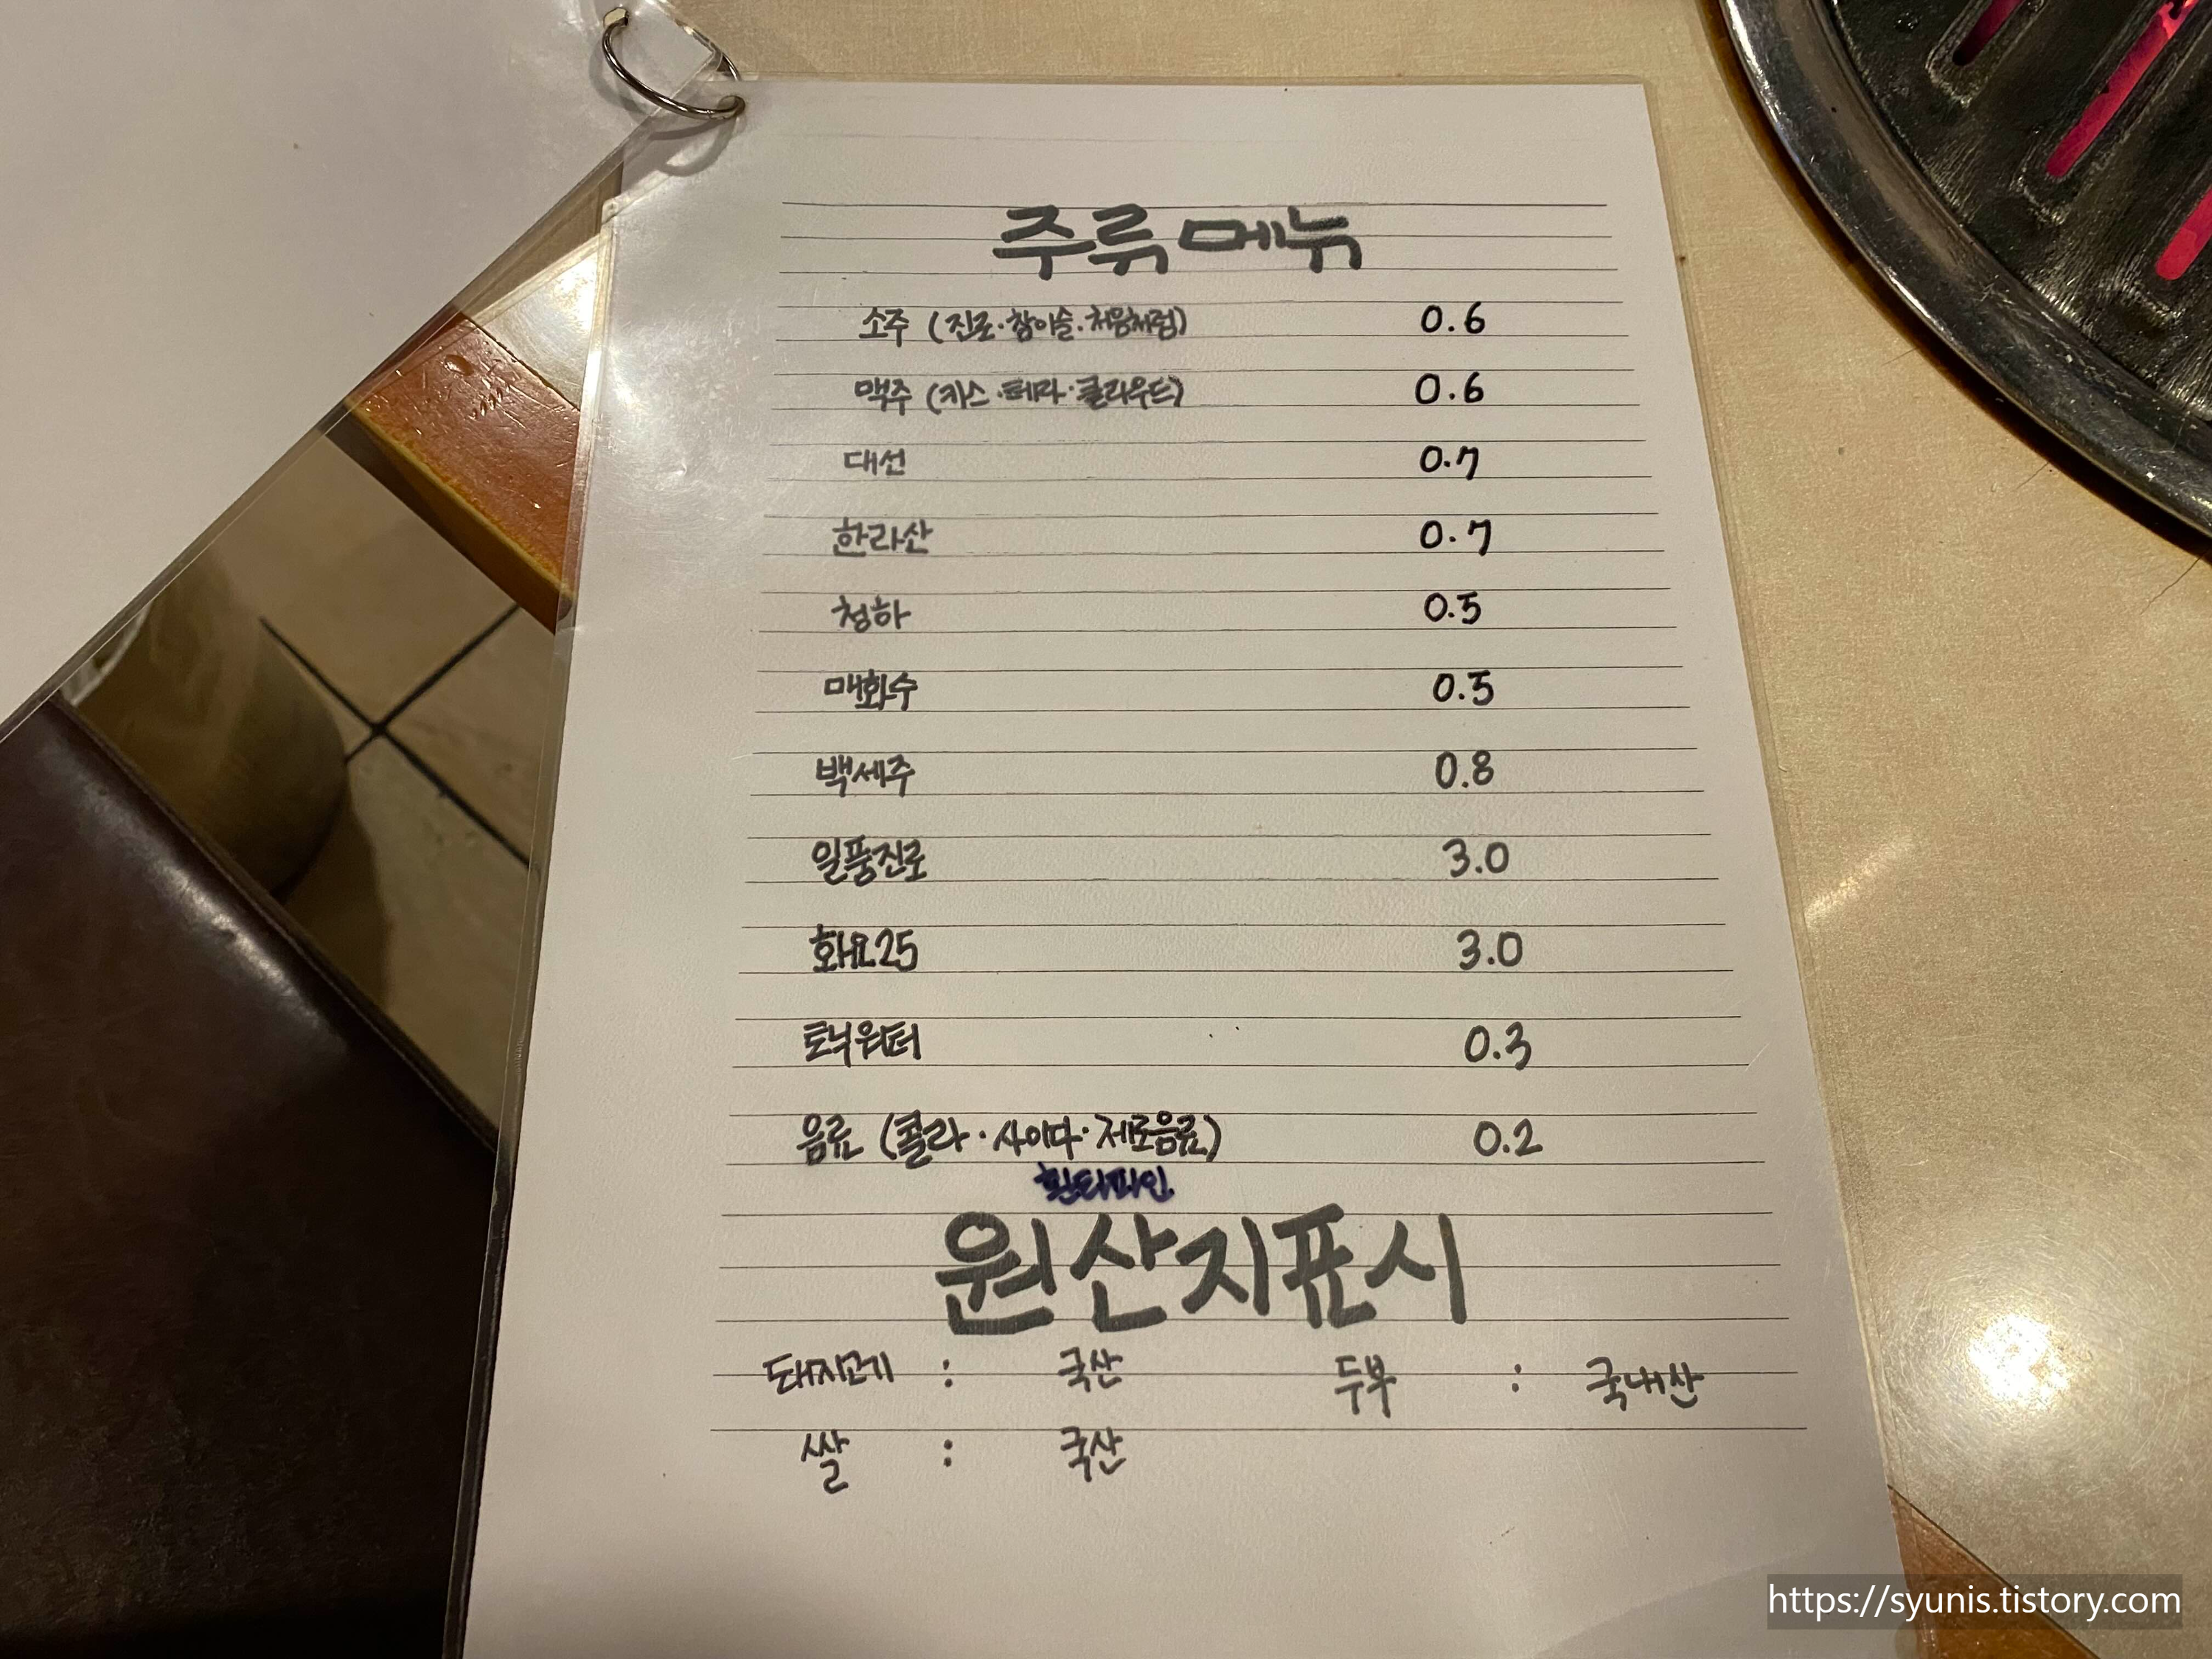 주류메뉴
소주 (진로·참이슬·처음처럼) 0.6
맥주 (카스·테라·클라우드) 0.6
대선 0.7
한라산 0.7
청하 0.5
매화수 0.5
백세주 0.8
일품진로 3.0
화요25 3.0
토닉워터 0.3
음료 (콜라·사이다·제로음료) 0.2
환타파인
원산지표시
돼지고기 : 국산 두부 : 국내산
쌀 : 국산
https://syunis.tistory.com